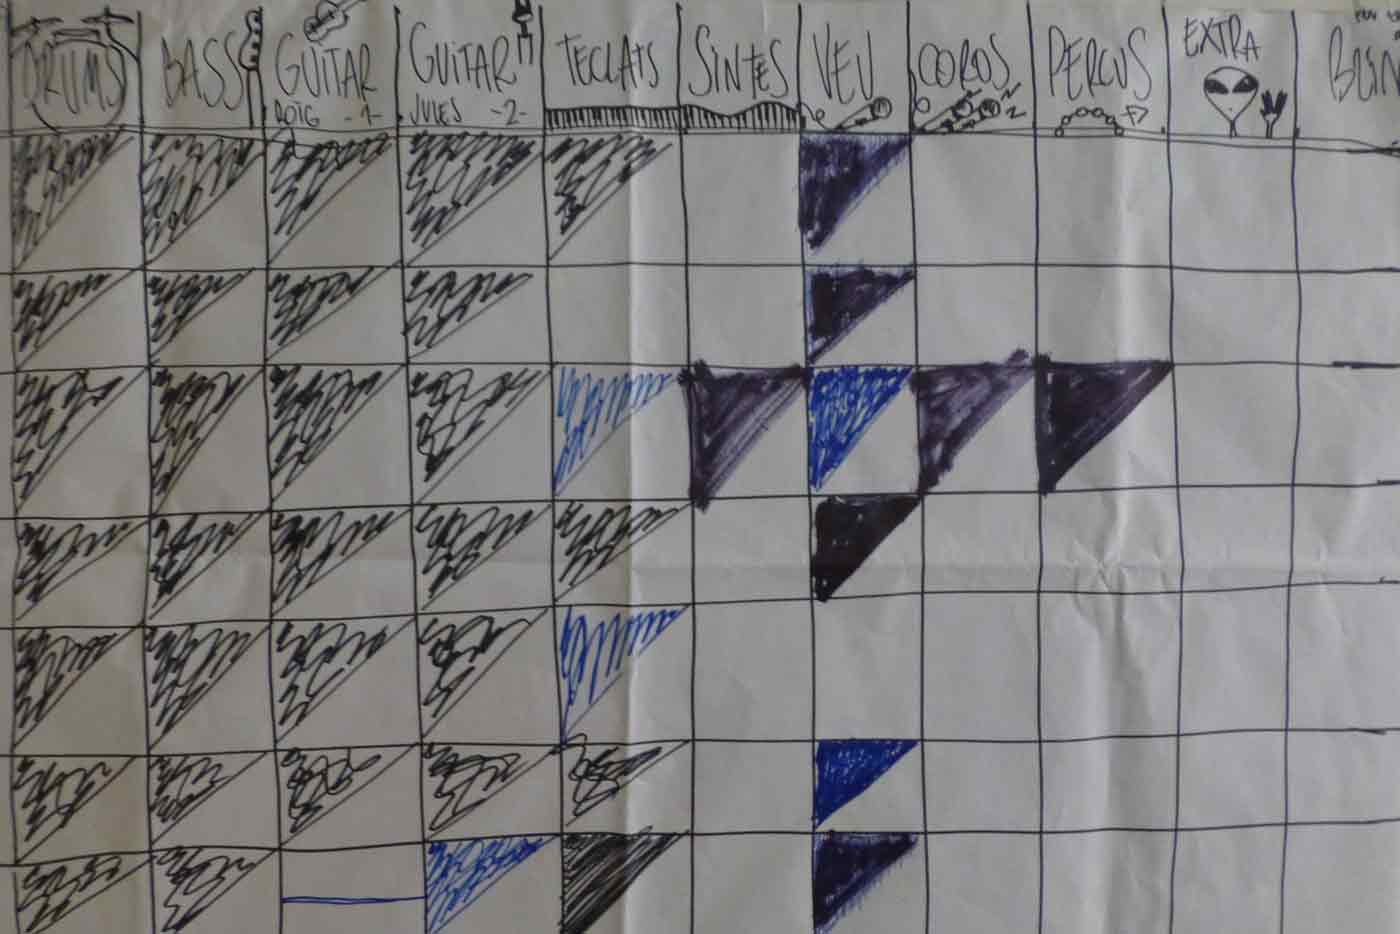 DRUMS BASS GUITAR GUITAR TECLATS SINTES VEU COROS PERCUS EXTRA
ROIG -1- JULES -2-